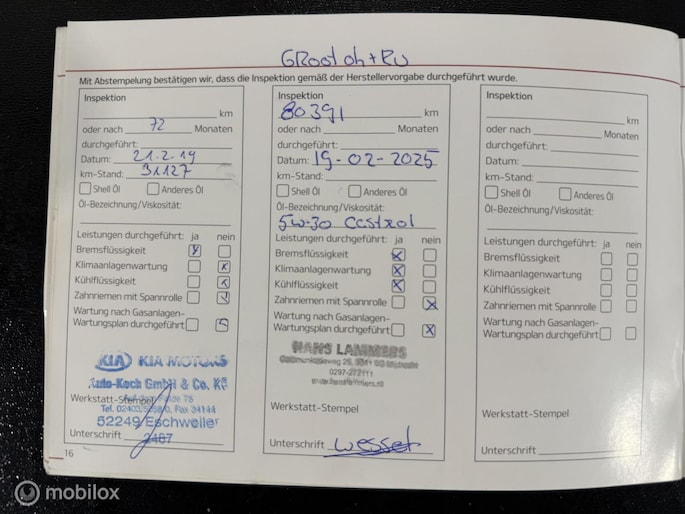 GROOT oh + RU
Mit Abstempelung bestätigen wir, dass die Inspektion gemäß der Herstellervorgabe durchgeführt wurde.
Inspektion
km
oder nach 72 Monaten
durchgeführt:
Datum: 21.2.19
km-Stand: 31127
Shell Öl Anderes Öl
Öl-Bezeichnung/Viskosität:
Leistungen durchgeführt: ja nein
Bremsflüssigkeit
Klimaanlagenwartung
Kühlflüssigkeit
Zahnriemen mit Spannrolle
Wartung nach Gasanlagen-
Wartungsplan durchgeführt
KIA KIA MOTORS
Auto-Koch GmbH & Co. KG
Werkstatt-Stempel
52249 Eschweiler
Unterschrift 2487
16
Inspektion
80391 km
oder nach Monaten
durchgeführt:
Datum: 19-02-2025
km-Stand:
Shell Öl Anderes Öl
Öl-Bezeichnung/Viskosität:
5W-30 Castrol
Leistungen durchgeführt: ja nein
Bremsflüssigkeit
Klimaanlagenwartung
Kühlflüssigkeit
Zahnriemen mit Spannrolle
Wartung nach Gasanlagen-
Wartungsplan durchgeführt
HANS LAMMERS
0297-272111
Werkstatt-Stempel
Unterschrift wessel
Inspektion
km
oder nach Monaten
durchgeführt:
Datum:
km-Stand:
Shell Öl Anderes Öl
Öl-Bezeichnung/Viskosität:
Leistungen durchgeführt: ja nein
Bremsflüssigkeit
Klimaanlagenwartung
Kühlflüssigkeit
Zahnriemen mit Spannrolle
Wartung nach Gasanlagen-
Wartungsplan durchgeführt
Werkstatt-Stempel
Unterschrift
mobilox